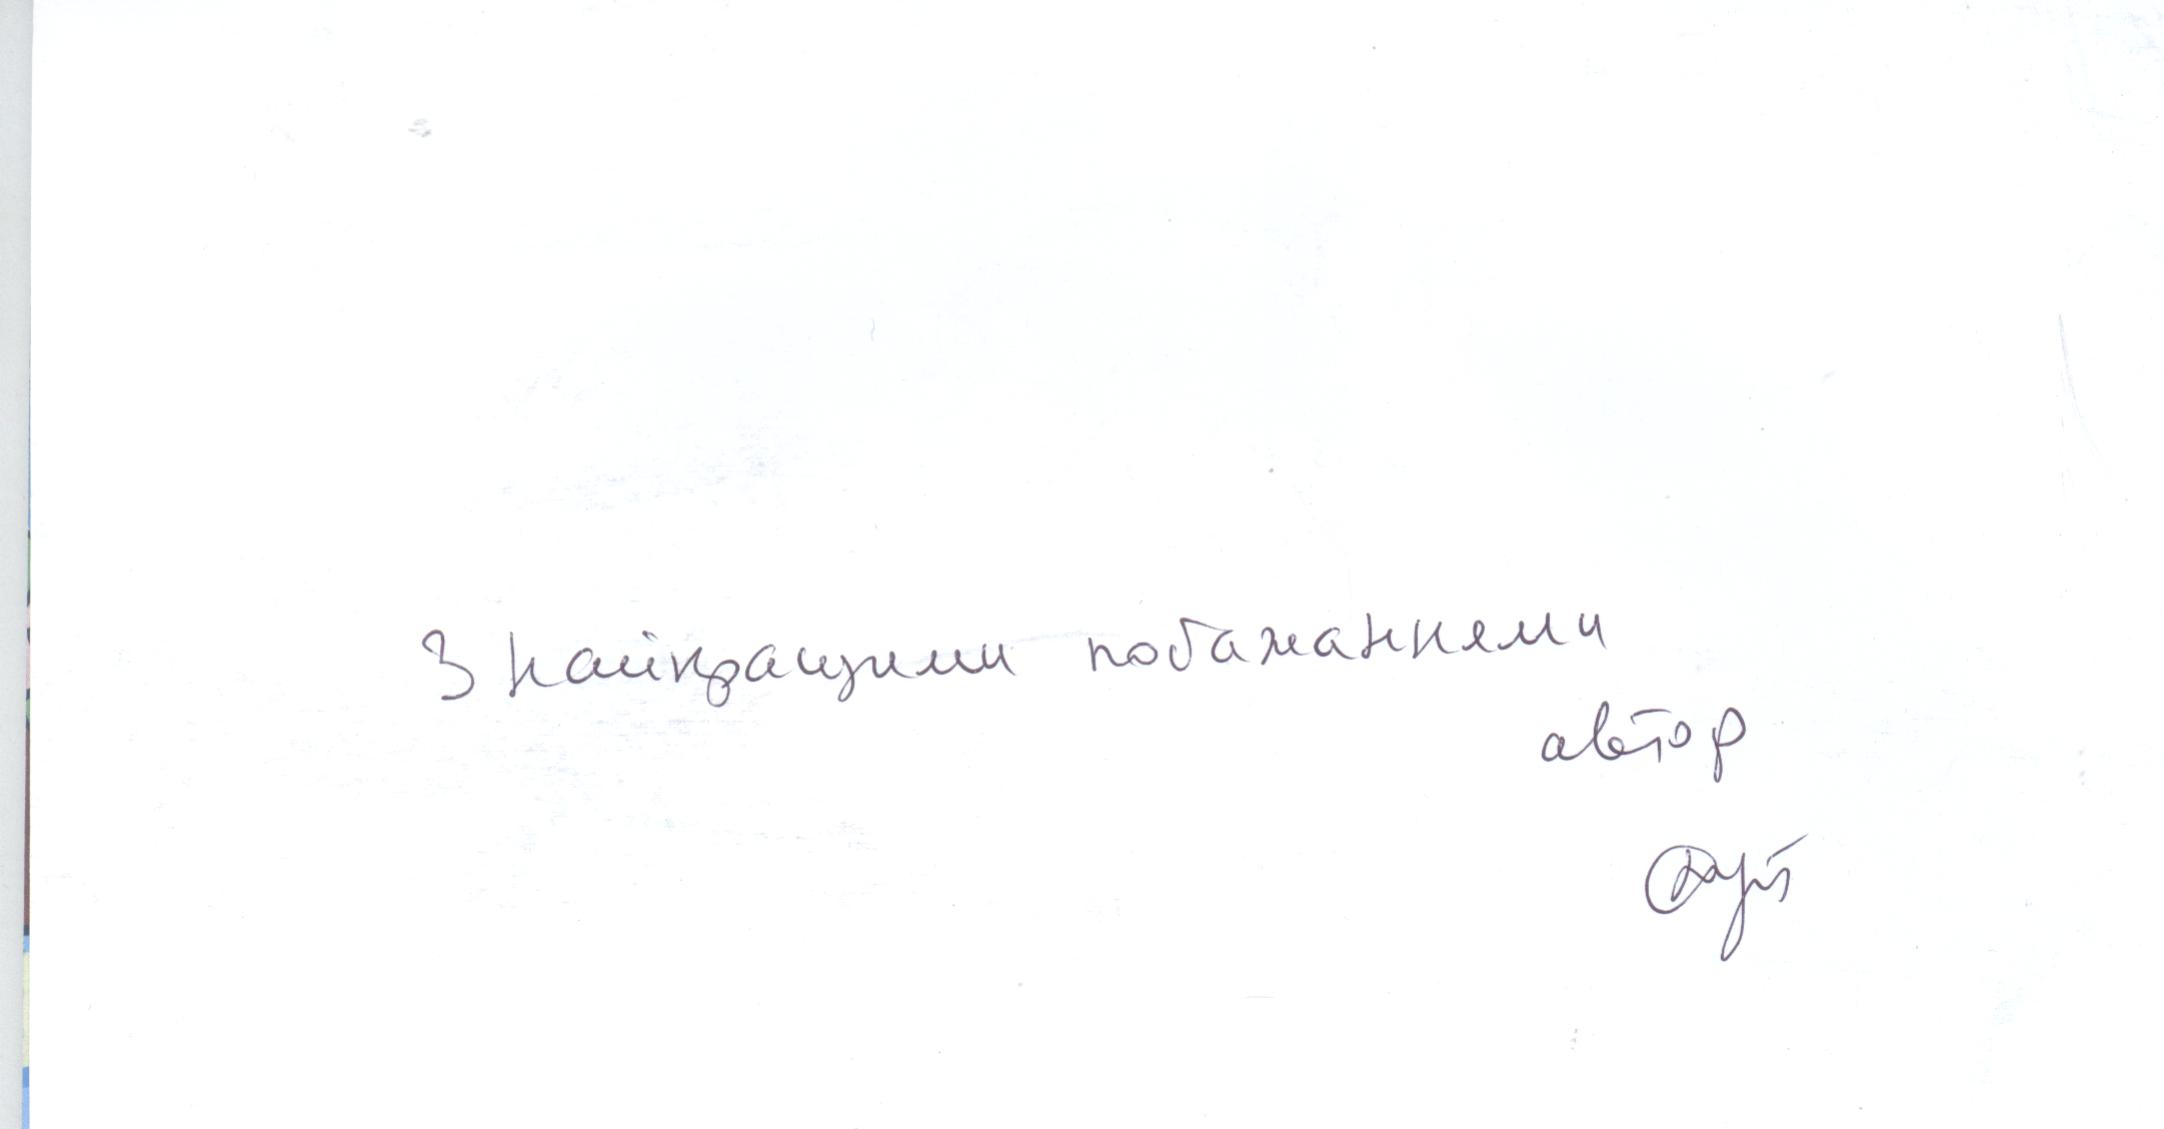 З найкращими побажаннями
автор